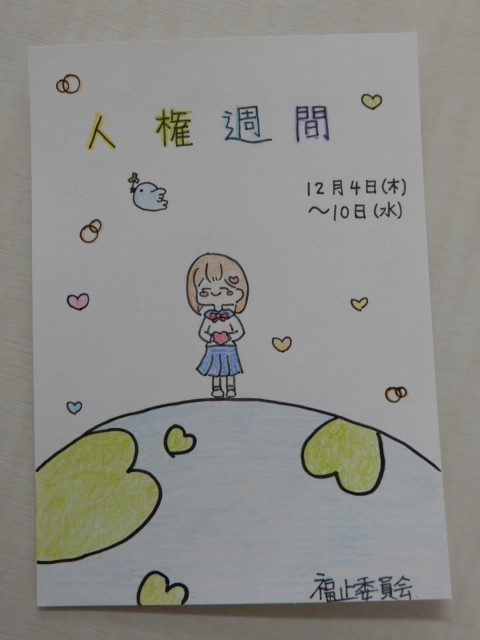 人権週間
12月4日(木)
～10日(水)
福止委員会